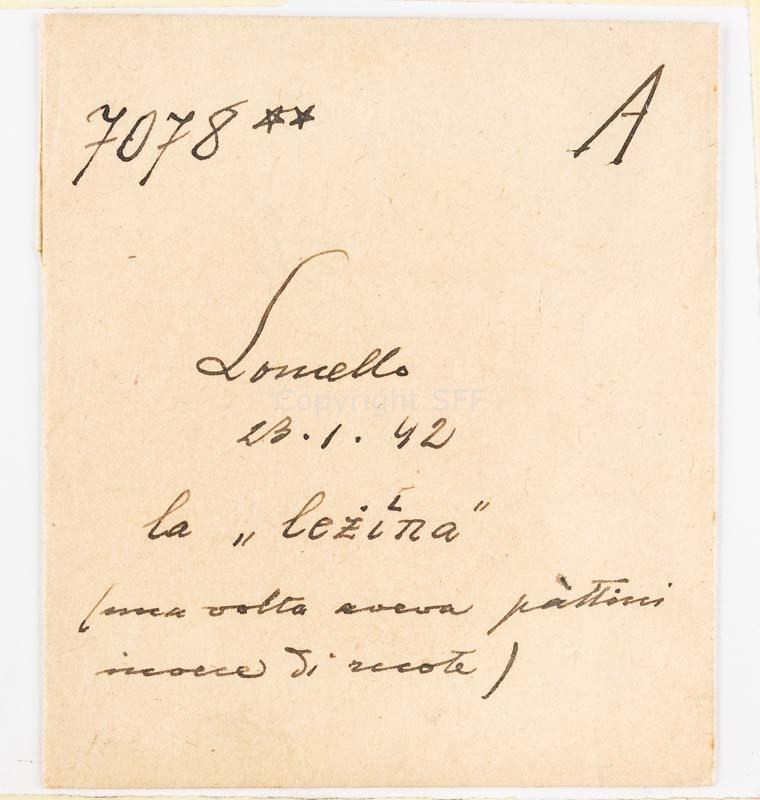 7078 ** A
Lomello
23.1.42
la „ležina"
(una volta aveva pàttini
invece di ruote)
Copyright SFF